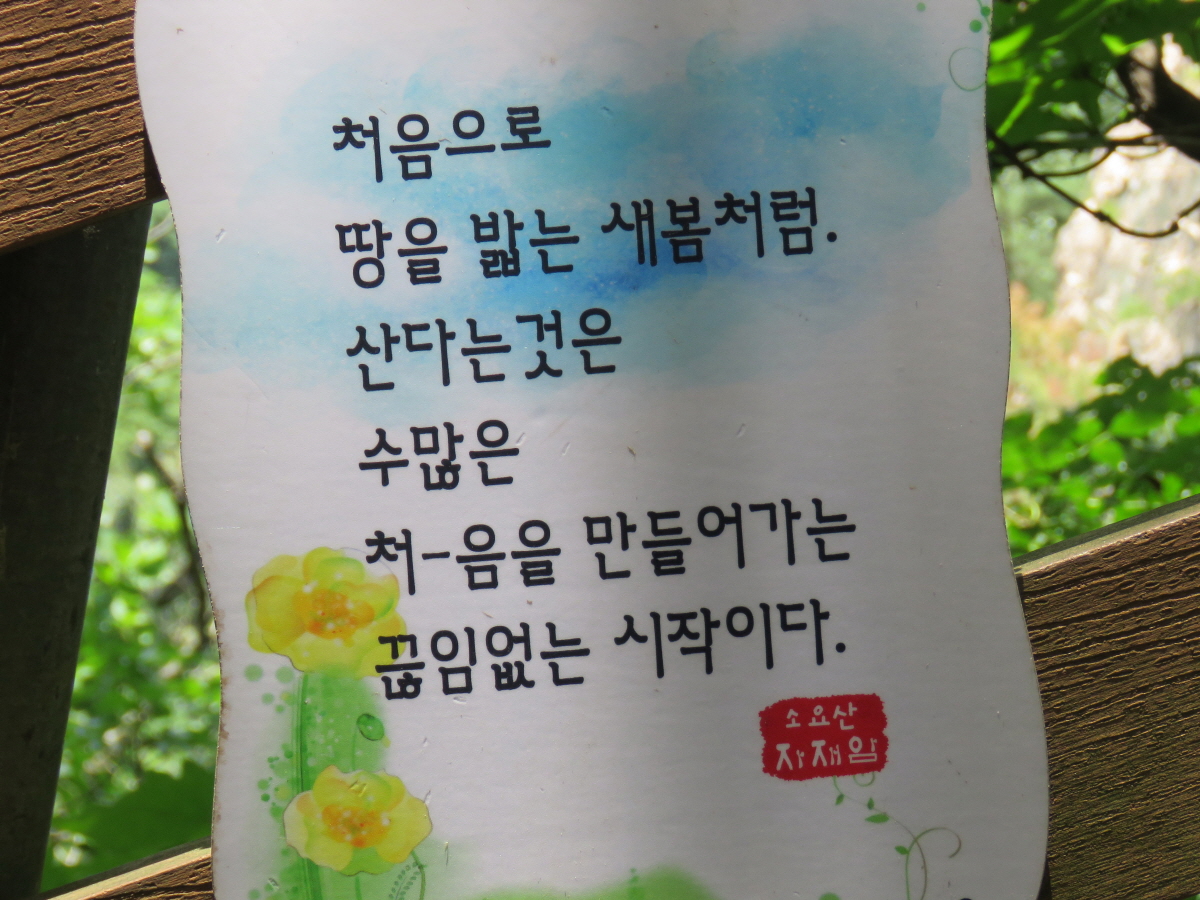 처음으로
땅을 밟는 새봄처럼.
산다는것은
수많은
처-음을 만들어가는
끊임없는 시작이다.
소요산
자재암